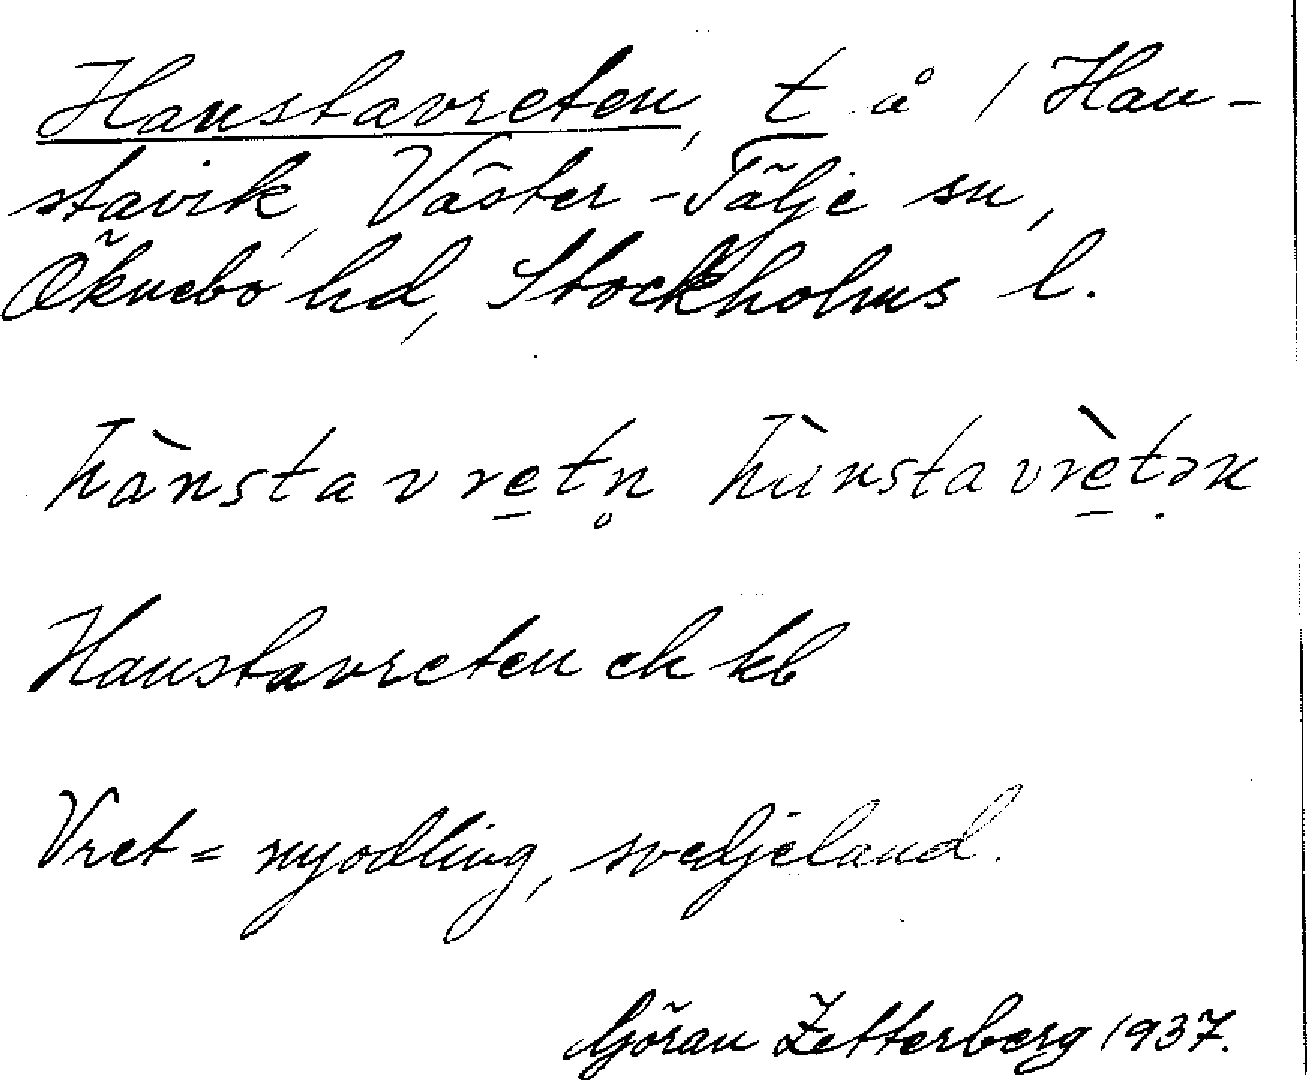 Hanstavreten, t å / Han-
stavik, Väster-Tälje sn,
Öknebo hd, Stockholms l.
hànstavretn̥ hùnstavrètən
Hanstavreten ek kb
Vret = nyodling, svedjeland.
Göran Zetterberg 1937.